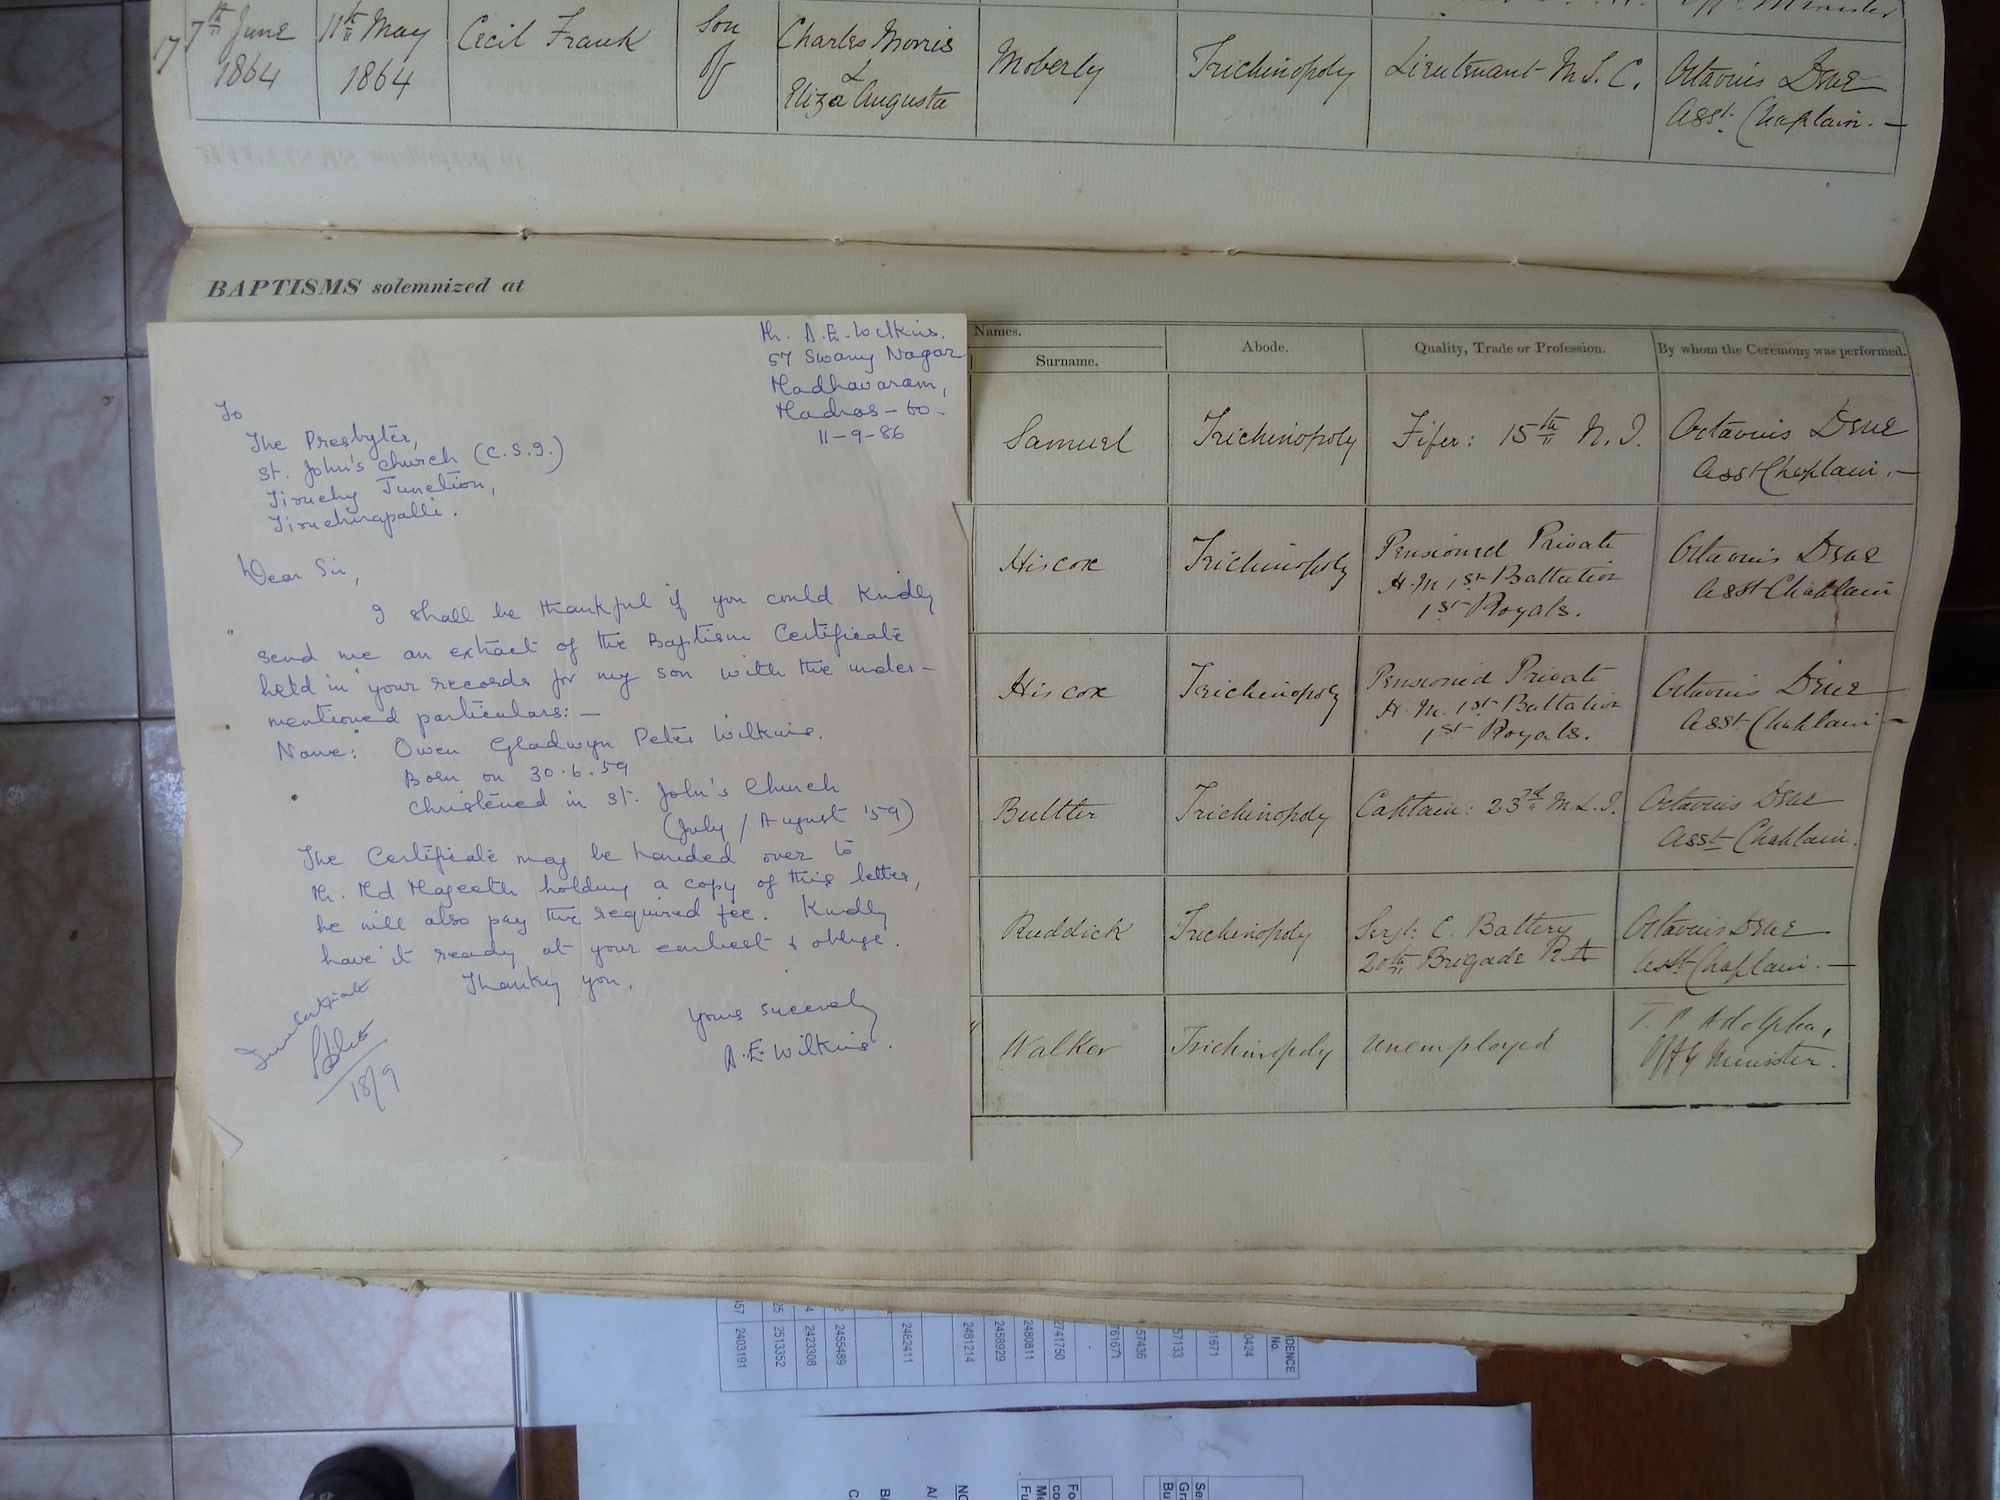 17 7th June 1864 11th May 1864 Cecil Frank Son of Charles Morris & Eliza Augusta Moberly Trichinopoly Lieutenant M.S.C. Octavius Dene Asst. Chaplain.—
BAPTISMS solemnized at
Names.
Surname. Abode. Quality, Trade or Profession. By whom the Ceremony was performed.
Samuel Trichinopoly Fifer: 15th N.I. Octavius Dene Asst Chaplain.—
Hiscox Trichinopoly Pensioned Private H.M. 1st Battalion 1st Royals. Octavius Dene Asst Chaplain
Hiscox Trichinopoly Pensioned Private H.M. 1st Battalion 1st Royals. Octavius Dene Asst Chaplain—
Bultter Trichinopoly Captain: 23rd M.L.I. Octavius Dene Asst Chaplain.
Ruddick Trichinopoly Sergt: C. Battery 20th Brigade R.A Octavius Dene Asst Chaplain.—
Walker Trichinopoly Unemployed Offg Minister.
A.E. Wilkins.
57 Swamy Nagar
Madhavaram,
Madras-60-
11-9-86
To
The Presbyter,
St. John's Church (C.S.I.)
Tiruchy Junction,
Tiruchirapalli.
Dear Sir,
I shall be thankful if you could kindly
send me an extract of the Baptism Certificate
held in your records for my son with the under-
mentioned particulars:—
Name: Owen Gladwyn Peter Wilkins.
Born on 30.6.59
Christened in St. John's Church
(July / August '59)
The Certificate may be handed over to
Mr. Md Majeeth holding a copy of this letter,
he will also pay the required fee. Kindly
have it ready at your earliest & oblige.
Thanking you,
Yours sincerely
A.E. Wilkins.
18/9
2403191
2513352
2423308
2455489
2482411
2481214
2458929
2480811
2741750
761671
57436
57133
61671
0424
DENCE
No.